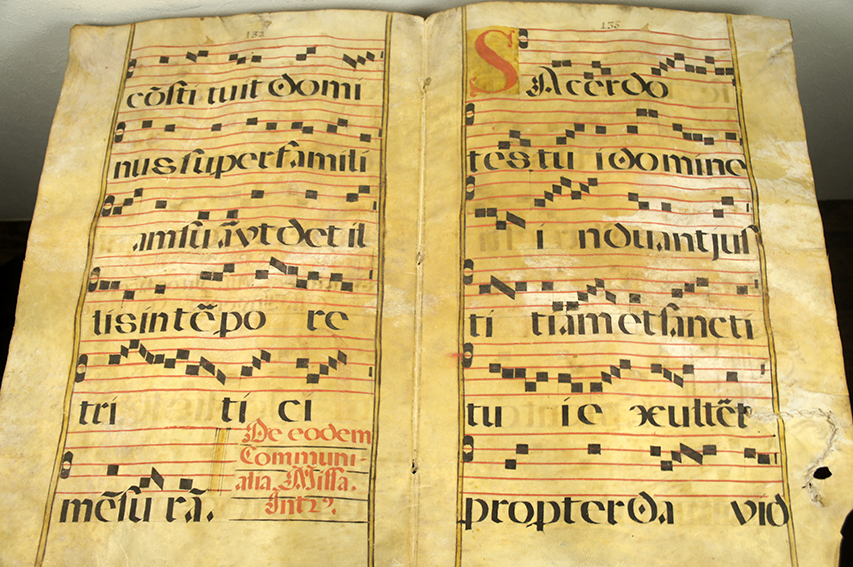 132
cõsti tuit domi
nus super famili
am su ã vt det il
lis in tẽpo re
tri ti ci
mẽsu rã.
De eodem
Communi
alia Missa.
Intrꝰ.
135
SAcerdo
tes tu i domine
i nduant jus
ti tiam et sancti
tu i e xultẽt
propter da vid